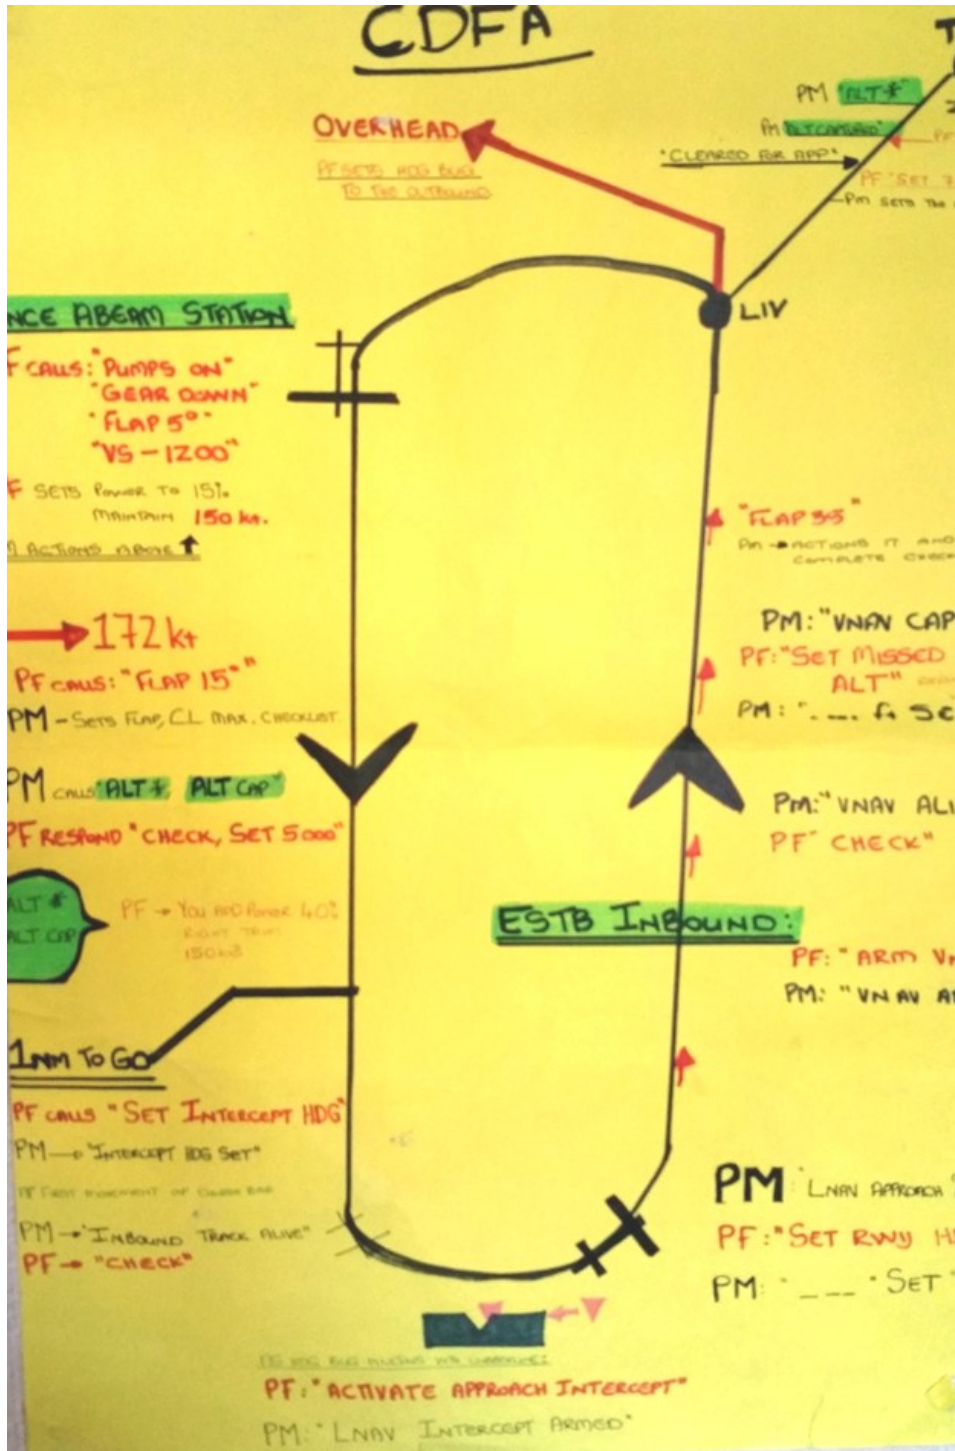 CDFA
PM "ALT*"
PM "ALT CAPTURED"
"CLEARED FOR APP"
PF "SET 7
PM SETS THE
OVERHEAD
PF SETS HDG BUG
TO THE OUTBOUND
LIV
NCE ABEAM STATION
F CALLS: "PUMPS ON"
"GEAR DOWN"
"FLAP 5°"
"VS-1200"
F SETS POWER TO 15%
MAINTAIN 150 kt.
M ACTIONS ABOVE
172kt
PF CALLS: "FLAP 15°"
PM - SETS FLAP, CL MAX, CHECKLIST.
PM CALLS "ALT* ALT CAP"
PF RESPOND "CHECK, SET 5000"
ALT *
ALT CAP
PF → YOU ADD POWER 40%
RIGHT TRIM
150kts
1NM TO GO
PF CALLS "SET INTERCEPT HDG"
PM → "INTERCEPT HDG SET"
PM → "INBOUND TRACK ALIVE"
PF → "CHECK"
"FLAP 35"
PM → ACTIONS IT AND
COMPLETE CHECK
PM: "VNAV CAP
PF: "SET MISSED
ALT"
PM: "_ _ _ ft SE
PM: "VNAV ALI
PF "CHECK"
ESTB INBOUND:
PF: "ARM VN
PM: "VNAV A
PM "LNAV APPROACH
PF: "SET RWY H
PM: "_ _ _ " SET"
PF: "ACTIVATE APPROACH INTERCEPT"
PM: "LNAV INTERCEPT ARMED"